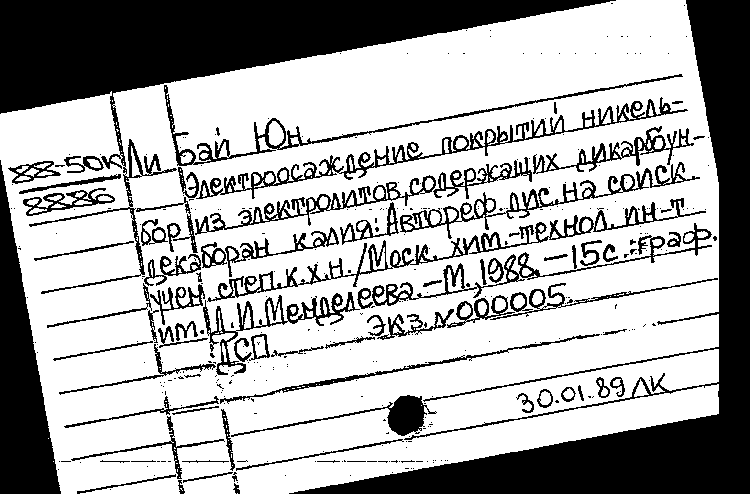 88-50к
8886
Ли Бай Юн.
Электроосаждение покрытий никель-
бор из электролитов, содержащих дикарбоун-
декаборан калия: Автореф. дис. на соиск.
учен. степ. к.х.н. / Моск. хим.-технол. ин-т
им. Д.И. Менделеева. - М., 1988. - 15с.: граф.
ДСП. Экз. N000005.
30.01.89 ЛК